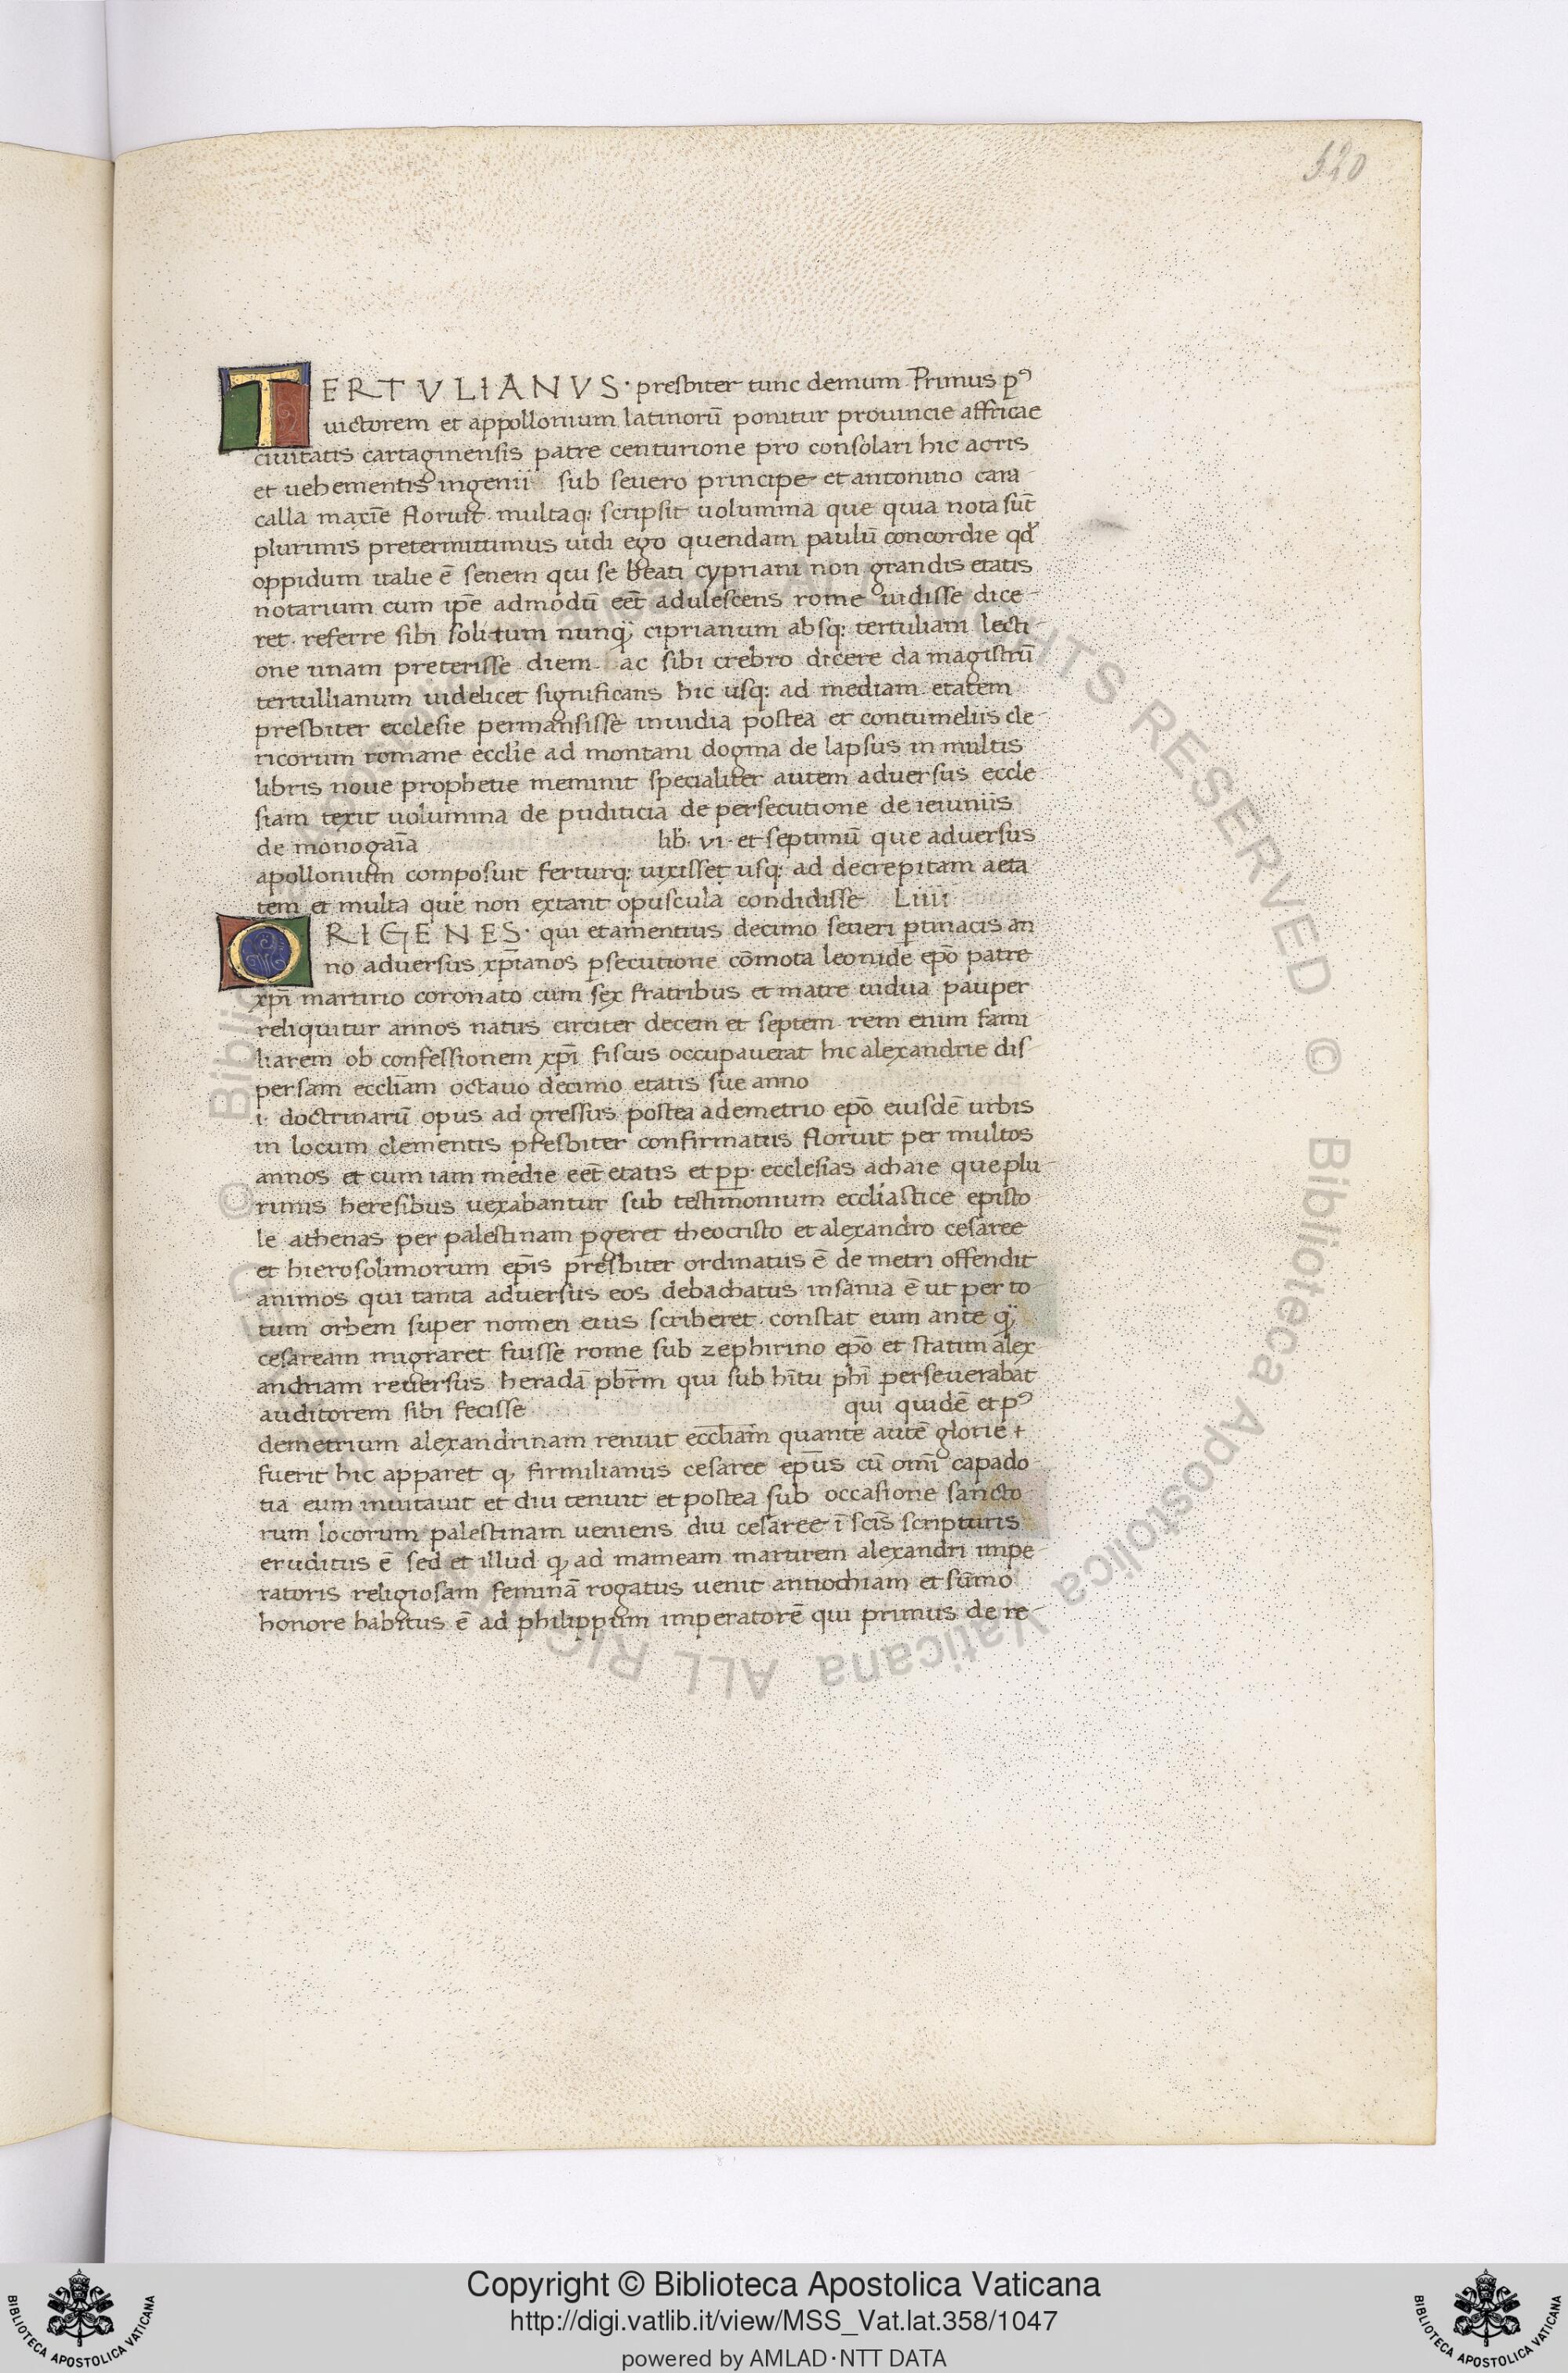 520
TERTVLIANVS · presbiter tunc demum Primus pꝰ
uictorem et appollonium latinorū ponitur prouincie affricae
ciuitatis cartaginensis patre centurione pro consolari hic acris
et uehementis ingenii sub seuero principe et antonino cara
calla maxīe floruit · multaq; scripsit uolumina que quia nota sūt
plurimis pretermittimus uidi ego quendam paulū concordie qđ
oppidum italie ē senem qui se beati cypriani non grandis etatis
notarium cum ip̄e admodū eēt adulescens rome uidisse dice
ret · referre sibi solitum nunq̄ ciprianum absq; tertuliani lecti
one unam preterisse diem ac sibi crebro dicere da magistrū
tertullianum uidelicet significans hic usq; ad mediam etatem
presbiter ecclesie permansisse inuidia postea et contumeliis cle
ricorum romane eccl̄ie ad montani dogma de lapsus in multis
libris noue prophetie meminit specialiter autem aduersus eccle
siam texit uolumina de puditicia de persecutione de ieiuniis
de monogaīa lib̄ · vi · et septimū que aduersus
apollonium composuit ferturq; uixisset usq; ad decrepitam aeta
tem et multa que non extant opuscula condidisse Liiii
ORIGENES · qui etamentius decimo seueri ꝑtinacis an
no aduersus xp̄ianos ꝑsecutione cōmota leonide ep̄o patre
xp̄i martirio coronato cum sex fratribus et matre uidua pauper
reliquitur annos natus circiter decem et septem rem enim fami
liarem ob confessionem xp̄i fiscus occupauerat hic alexandrie dis
persam eccl̄iam octauo decimo etatis sue anno
i · doctrinarū opus ad gressus postea ademetrio ep̄o eiusdē urbis
in locum clementis presbiter confirmatus floruit per multos
annos et cum iam medie eēt etatis et p̄p̄ · ecclesias achaie que plu
rimis heresibus uexabantur sub testimonium eccl̄iastice episto
le athenas per palestinam ꝑgeret theocristo et alexandro cesaree
et hierosolimorum ep̄is presbiter ordinatus ē de metri offendit
animos qui tanta aduersus eos debachatus insania ē ut per to
tum orbem super nomen eius scriberet · constat eum ante q̄
cesaream migraret fuisse rome sub zephirino ep̄o et statim alex
andriam reuersus heradā pb̄rm qui sub hītu phī perseuerabāt
auditorem sibi fecisse qui quidē et pꝰ
demetrium alexandrinam renuit eccl̄iam quante autē glorie +
fuerit hic apparet ꝙ firmilianus cesaree ep̄us cū om̄i capado
tia eum inuitauit et diu tenuit et postea sub occasione sancto
rum locorum palestinam ueniens diu cesaree ī scīs scripturis
eruditus ē sed et illud ꝙ ad mameam martirem alexandri impe
ratoris religiosam feminā rogatus uenit antiochiam et sūmo
honore habitus ē ad philippum imperatorē qui primus de re
© Biblioteca Apostolica Vaticana ALL RIGHTS RESERVED
Copyright © Biblioteca Apostolica Vaticana
http://digi.vatlib.it/view/MSS_Vat.lat.358/1047
powered by AMLAD·NTT DATA
BIBLIOTECA APOSTOLICA VATICANA
BIBLIOTECA APOSTOLICA VATICANA